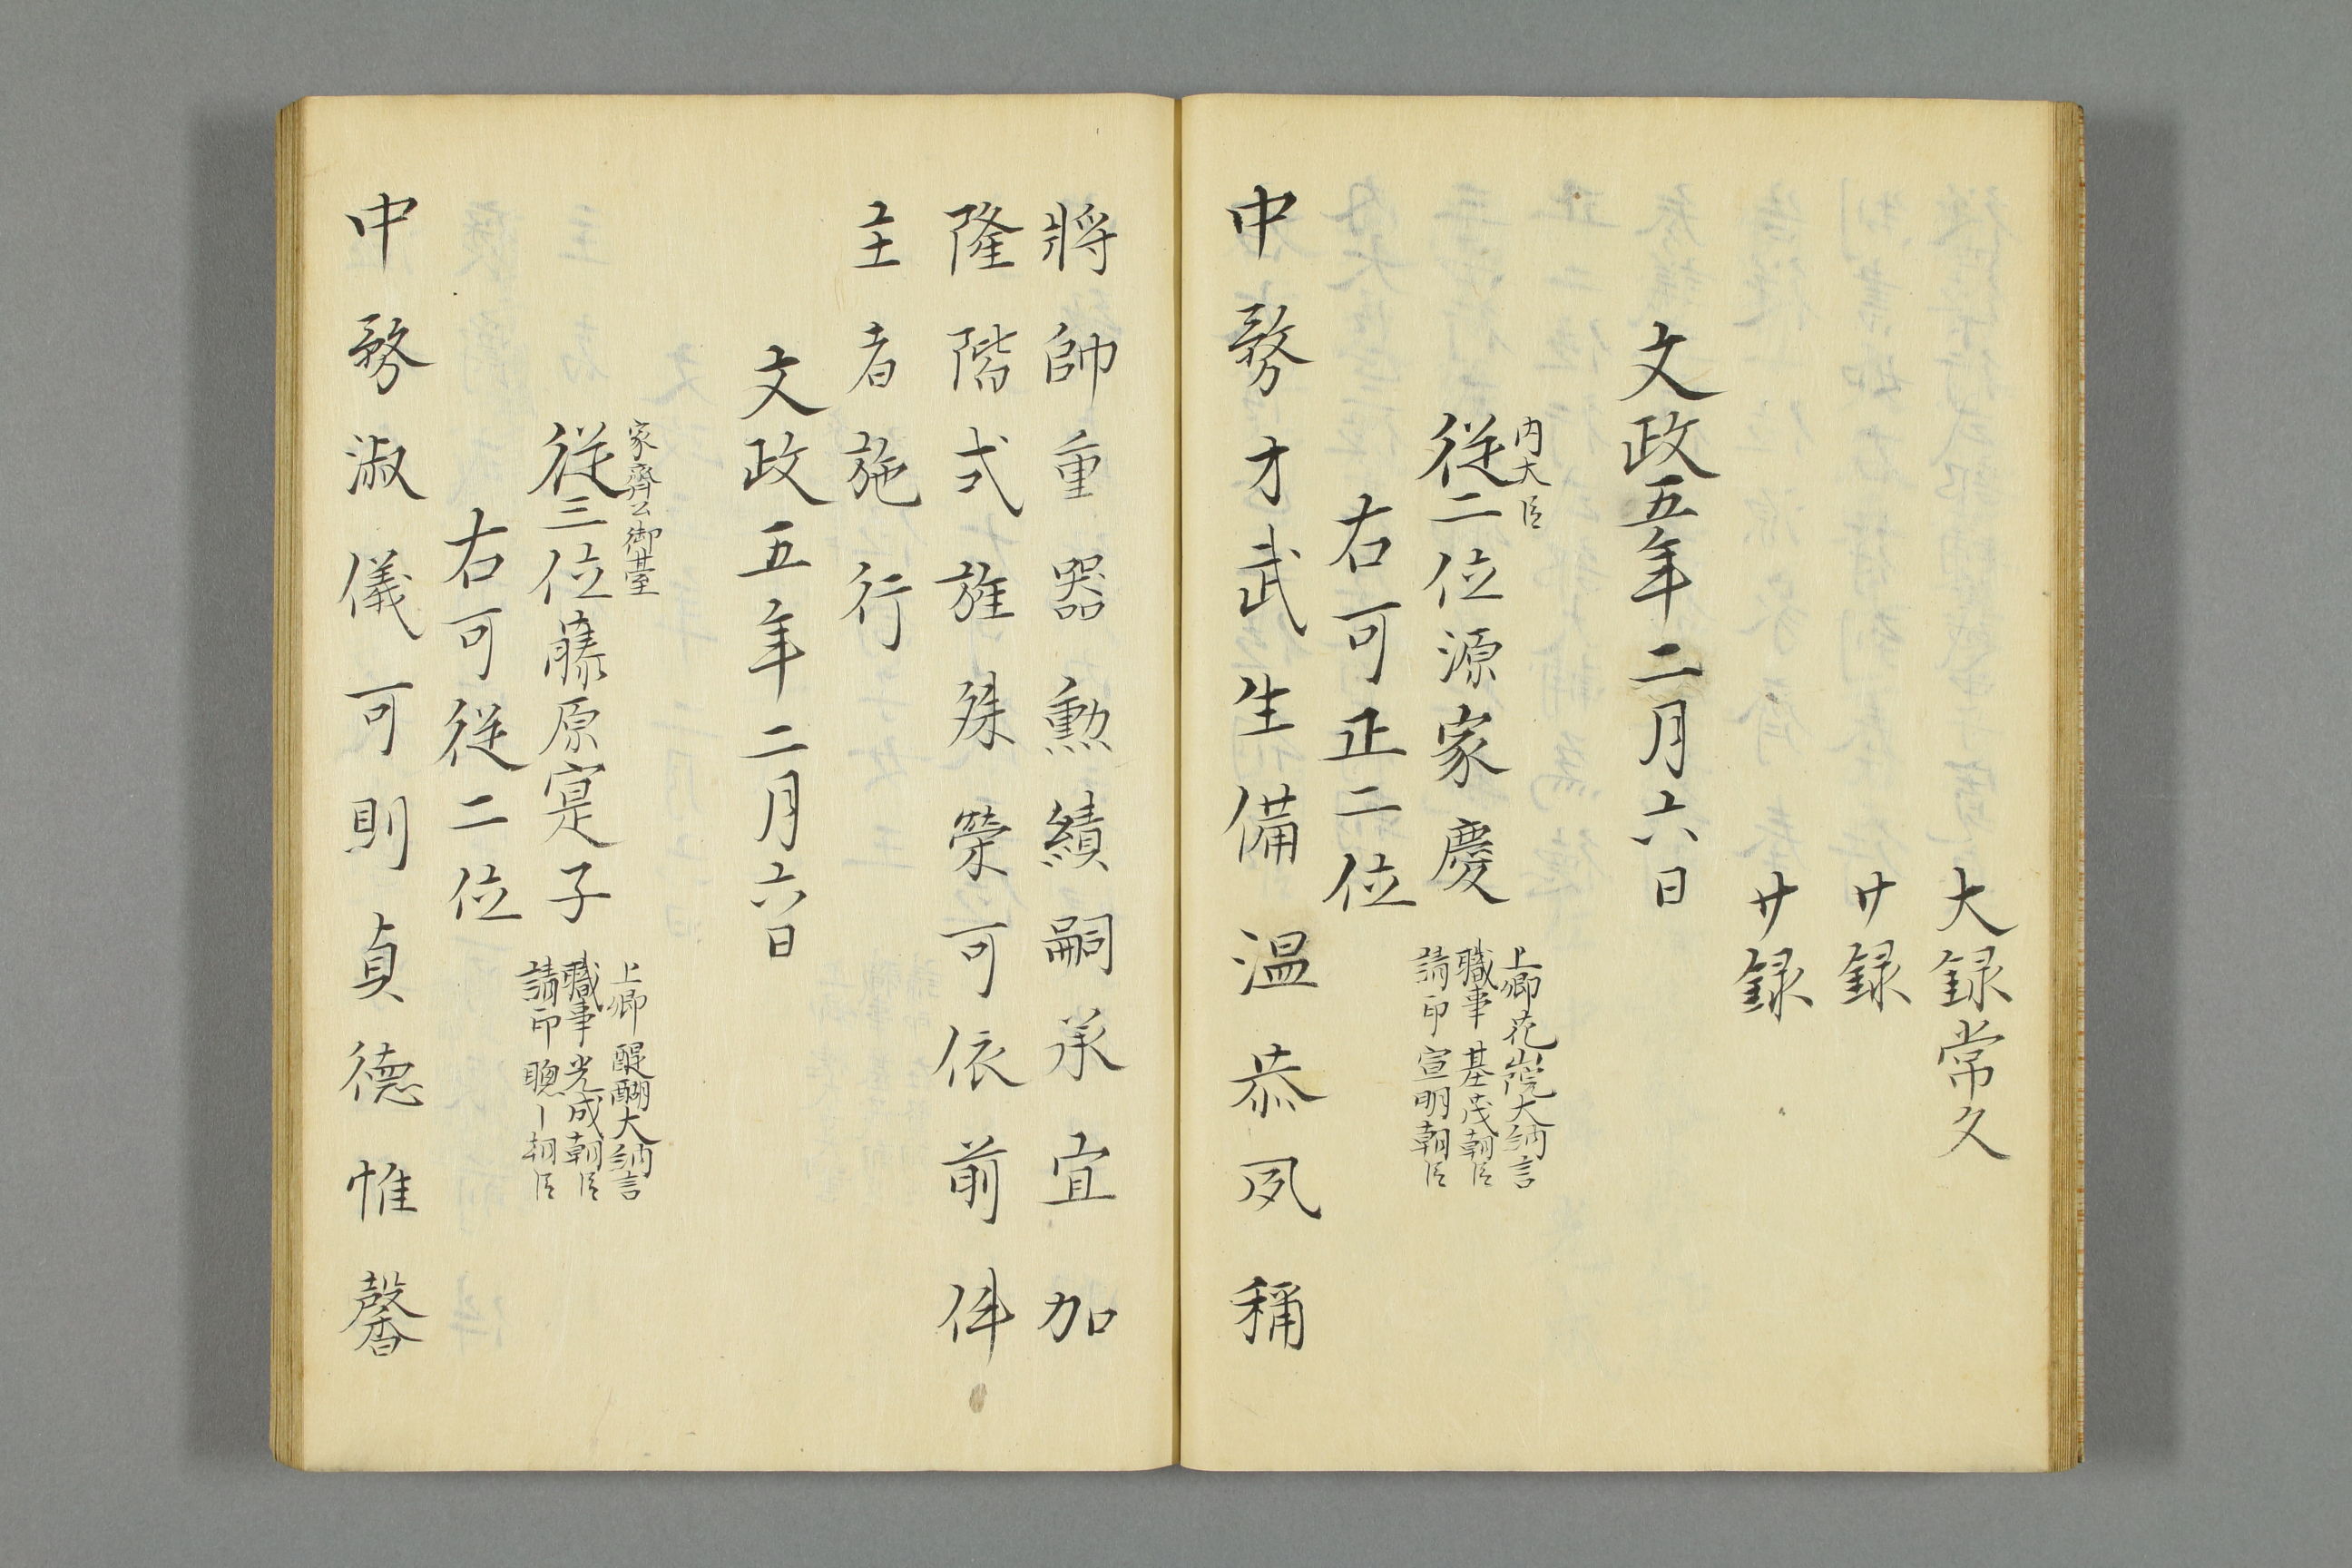 大録常久
廾録
廾録
文政五年二月六日
内大臣
従二位源家慶
上卿花山院大納言
職事基茂朝臣
請印宣明朝臣
右可正二位
中務才武生備温恭夙稱
將帥重器勲績嗣承宜加
隆階式旌殊榮可依前件
主者施行
文政五年二月六日
家齊公御臺
従三位藤原寔子
上卿醍醐大納言
職事光成朝臣
請印聰ー朝臣
右可従二位
中務淑儀可則貞徳惟馨